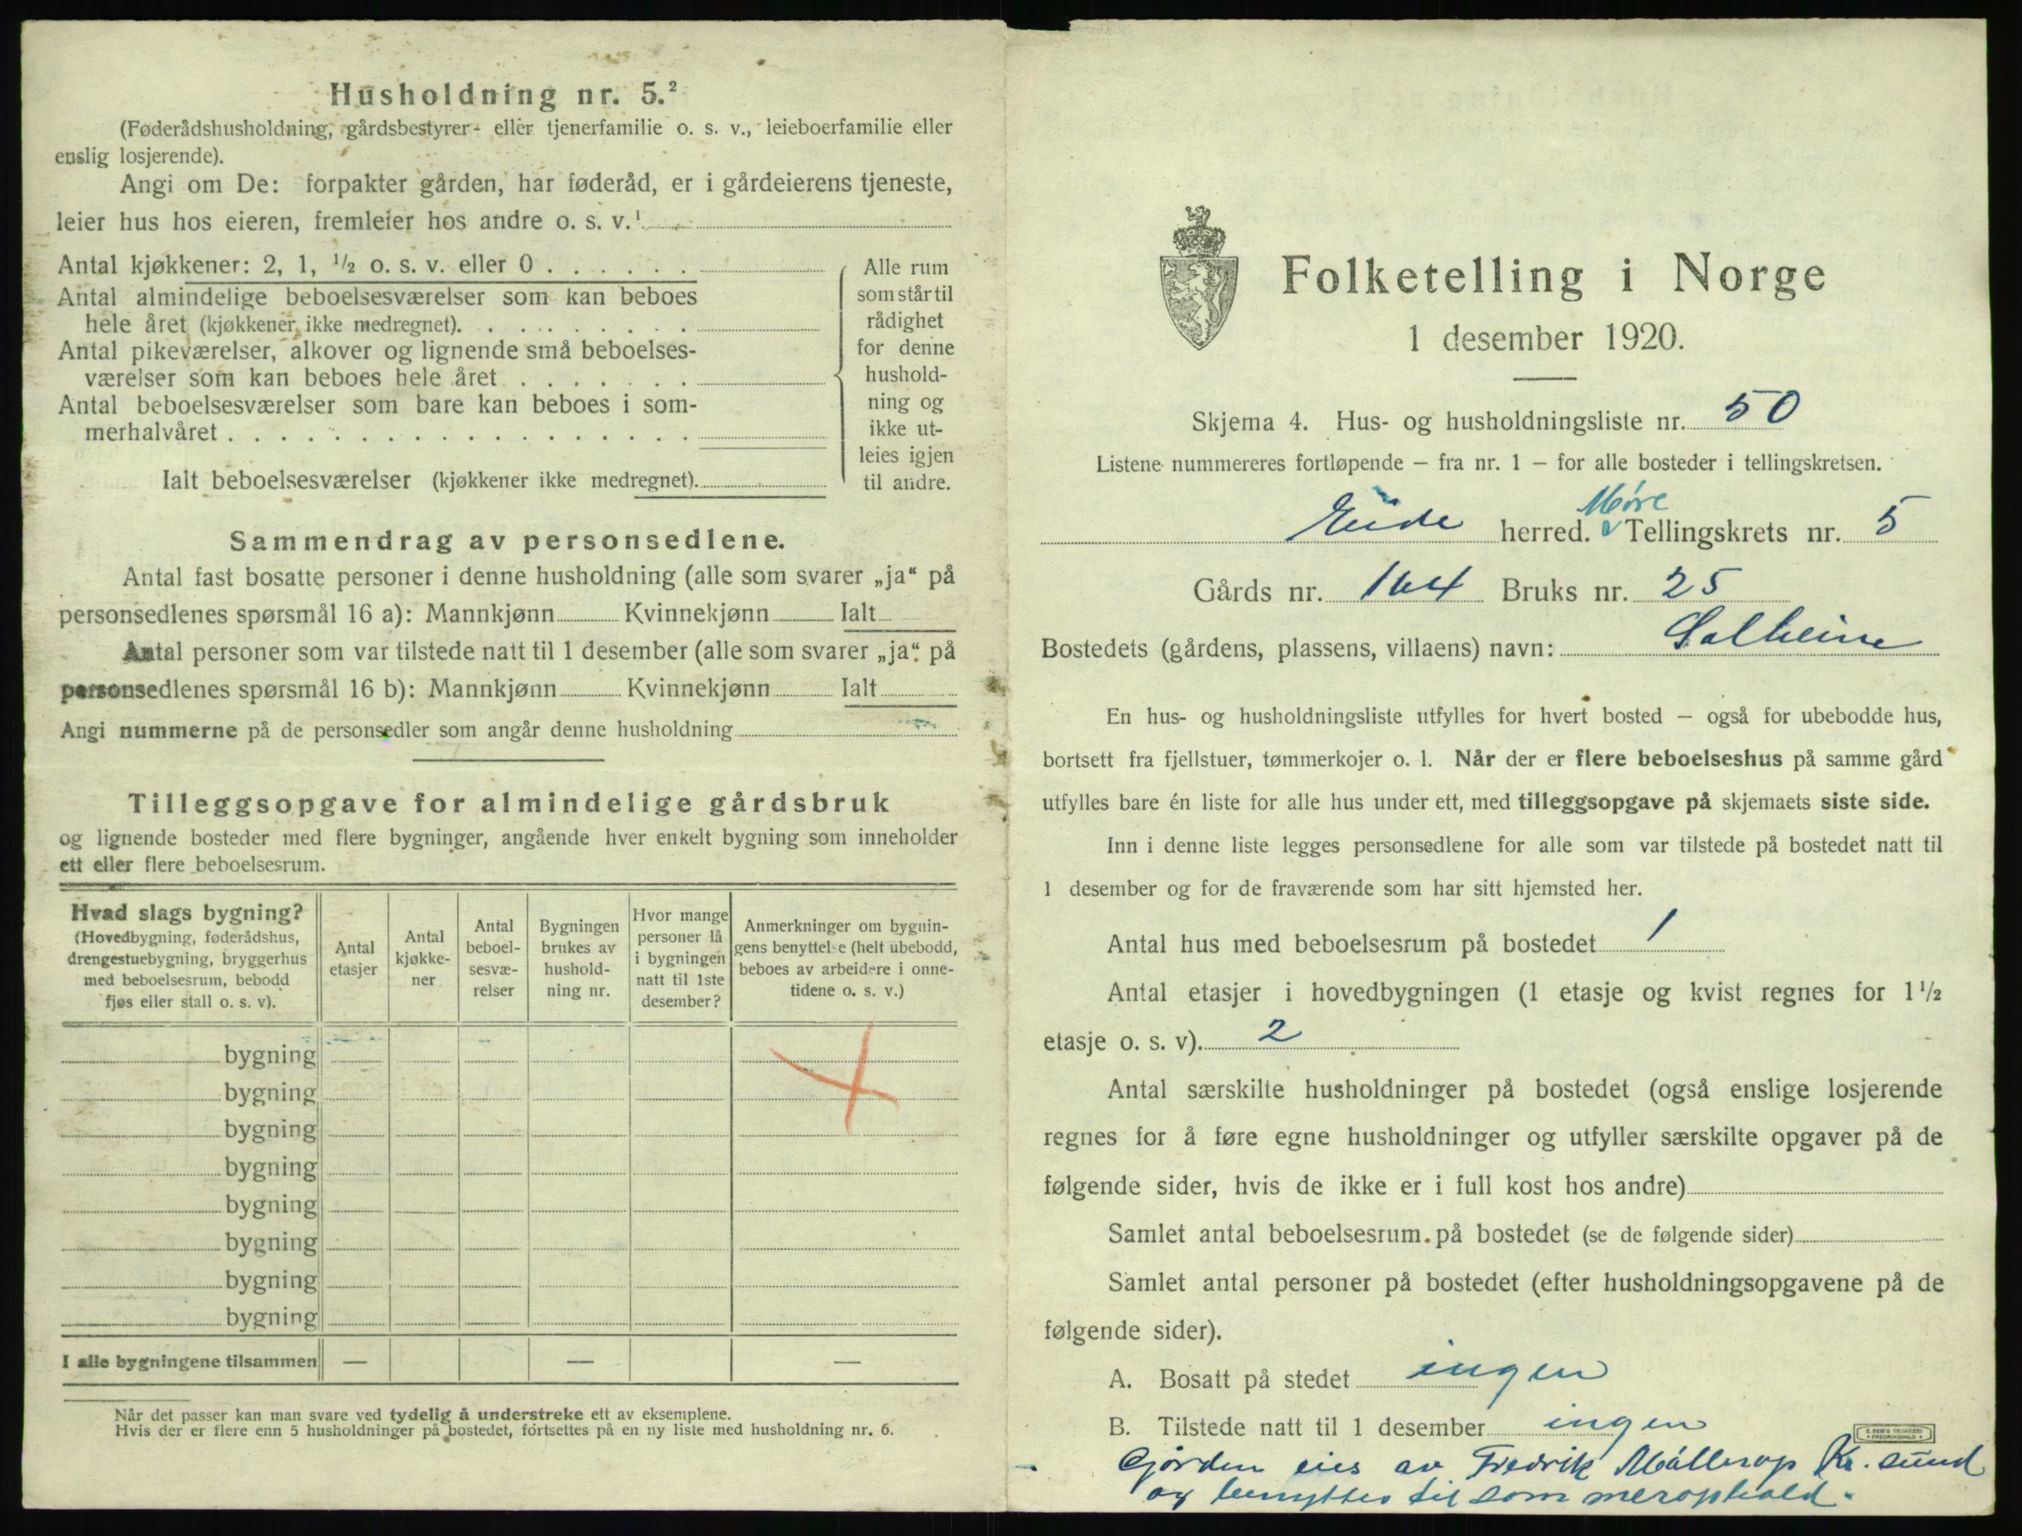 Husholdning nr. 5.²
(Føderådshusholdning, gårdsbestyrer- eller tjenerfamilie o. s. v., leieboerfamilie eller
enslig losjerende).
Angi om De: forpakter gården, har føderåd, er i gårdeierens tjeneste,
leier hus hos eieren, fremleier hos andre o. s. v.¹
Antal kjøkkener: 2, 1, ½ o. s. v. eller 0
Antal almindelige beboelsesværelser som kan beboes
hele året (kjøkkener ikke medregnet).
Antal pikeværelser, alkover og lignende små beboelses-
værelser som kan beboes hele året
Antal beboelsesværelser som bare kan beboes i som-
merhalvåret
Ialt beboelsesværelser (kjøkkener ikke medregnet).
Alle rum
som står til
rådighet
for denne
hushold-
ning og
ikke ut-
leies igjen
til andre.
Sammendrag av personsedlene.
Antal fast bosatte personer i denne husholdning (alle som svarer „ja“ på
personsedlenes spørsmål 16 a): Mannkjønn Kvinnekjønn Ialt
Antal personer som var tilstede natt til 1 desember (alle som svarer „ja“ på
personsedlenes spørsmål 16 b): Mannkjønn Kvinnekjønn Ialt
Angi nummerne på de personsedler som angår denne husholdning
Tilleggsopgave for almindelige gårdsbruk
og lignende bosteder med flere bygninger, angående hver enkelt bygning som inneholder
ett eller flere beboelsesrum.
Hvad slags bygning?
(Hovedbygning, føderådshus,
drengestuebygning, bryggerhus
med beboelsesrum, bebodd
fjøs eller stall o. s. v).
Antal
etasjer
Antal
kjøkke-
ner
Antal
beboel-
sesvæ-
relser
Bygningen
brukes av
hushold-
ning nr.
Hvor mange
personer lå
i bygningen
natt til 1ste
desember?
Anmerkninger om bygnin-
gens benyttelse (helt ubebodd,
beboes av arbeidere i onne-
tidene o. s. v.)
bygning
bygning
bygning
bygning
bygning
bygning
bygning
bygning
I alle bygningene tilsammen — — —
Når det passer kan man svare ved tydelig å understreke ett av eksemplene.
Hvis der er flere enn 5 husholdninger på bostedet, fortsettes på en ny liste med husholdning nr. 6.
Folketelling i Norge
1 desember 1920.
Skjema 4. Hus- og husholdningsliste nr. 50
Listene nummereres fortløpende – fra nr. 1 – for alle bosteder i tellingskretsen.
Møre
Eide herred. Tellingskrets nr. 5
Gårds nr. 164 Bruks nr. 25
Bostedets (gårdens, plassens, villaens) navn: Solheim
En hus- og husholdningsliste utfylles for hvert bosted – også for ubebodde hus,
bortsett fra fjellstuer, tømmerkojer o. l. Når der er flere beboelseshus på samme gård
utfylles bare én liste for alle hus under ett, med tilleggsopgave på skjemaets siste side.
Inn i denne liste legges personsedlene for alle som var tilstede på bostedet natt til
1 desember og for de fraværende som har sitt hjemsted her.
Antal hus med beboelsesrum på bostedet 1
Antal etasjer i hovedbygningen (1 etasje og kvist regnes for 1½
etasje o. s. v). 2
Antal særskilte husholdninger på bostedet (også enslige losjerende
regnes for å føre egne husholdninger og utfyller særskilte opgaver på de
følgende sider, hvis de ikke er i full kost hos andre)
Samlet antal beboelsesrum på bostedet (se de følgende sider)
Samlet antal personer på bostedet (efter husholdningsopgavene på de
følgende sider).
A. Bosatt på stedet ingen
B. Tilstede natt til 1 desember ingen
Gjørden eies av Fredrik Møllerop Kr. sund
og benyttes til sommerophold.